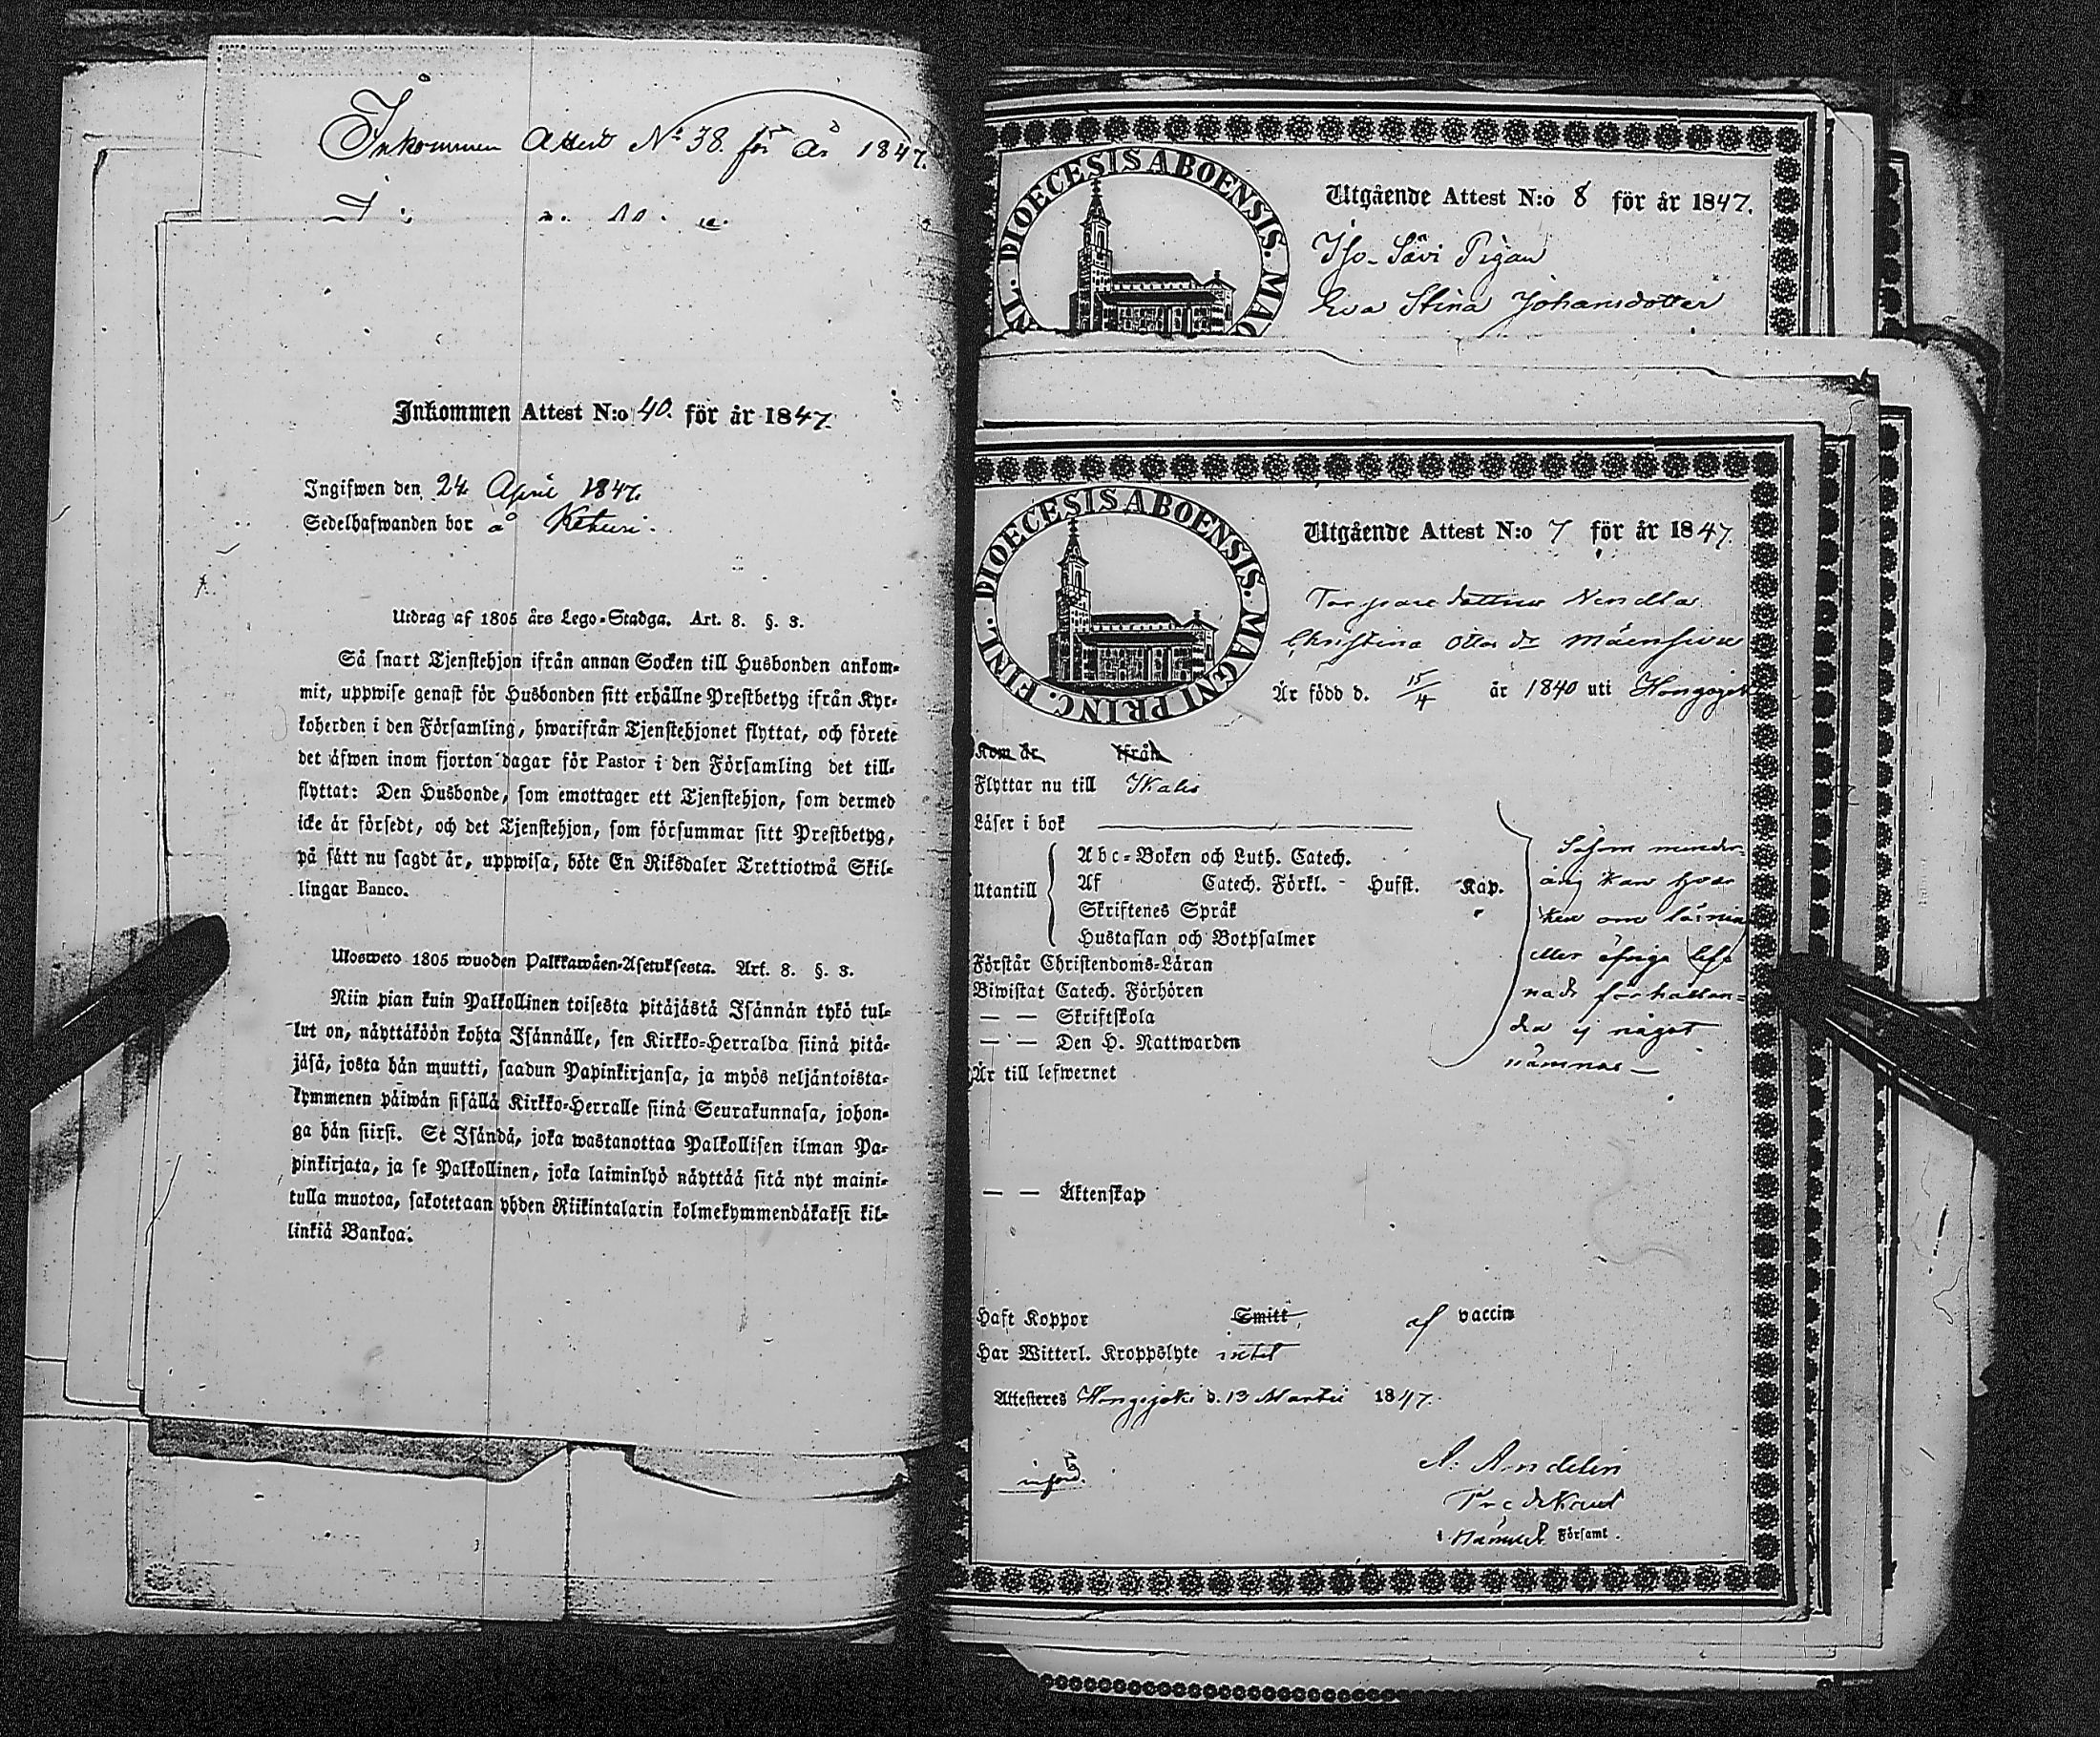 Inkommen Attest No 38. för år 1847.
Inkommen Attest N:o 40. för år 1847.
Ingifwen den 24 April 1847.
Sedelhafwanden bor å Kethuri.
Utdrag af 1805 års Lego-Stadga. Art. 8. §. 3.
Så snart Tjenstehjon ifrån annan Socken till Husbonden ankom-
mit, uppwise genast för Husbonden sitt erhållne Prestbetyg ifrån Kyr-
koherden i den Församling, hwarifrån Tjenstehjonet flyttat, och förete
det äfwen inom fjorton dagar för Pastor i den Församling det till-
flyttat: Den Husbonde, som emottager ett Tjenstehjon, som dermed
icke är försedt, och det Tjenstehjon, som försummar sitt Prestbetyg,
på sätt nu sagdt är, uppwisa, böte En Riksdaler Trettiotwå Skil-
lingar Banco.
Ulosweto 1805 wuoden Palkkawäen-Asetuksesta. Art. 8. §. 3.
Niin pian kuin Palkollinen toisesta pitäjästä Isännän tykö tul-
lut on, näyttäköön kohta Isännälle, sen Kirkko-Herralda siinä pitä-
jäsä, josta hän muutti, saadun Papinkirjansa, ja myös neljäntoista-
kymmenen päiwän sisällä Kirkko-Herralle siinä Seurakunnasa, johon-
ga hän siirsi. Se Isändä, joka wastanottaa Palkollisen ilman Pa-
pinkirjata, ja se Palkollinen, joka laiminlyö näyttää sitä nyt maini-
tulla muotoa, sakotetaan yhden Riikintalarin kolmekymmendäkaksi kil-
linkiä Bankoa.
DIOECESIS ABOENSIS. MAG
Utgående Attest N:o 8 för år 1847.
Iso-Sävi Pigan
Eva Stina Johansdotter
DIOECESIS ABOENSIS. MAGNI PRINC. FINL.
Utgående Attest N:o 7 för år 1847.
Torpare dottren Vendla
Christina Ottos dr Mäensivu
Är född d. 15/4 år 1840 uti
Kom år ifrån
Flyttar nu till Ikalis
Läser i bok
Utantill
Abc-Boken och Luth. Catech.
Af Catech. Förkl. - Husst. Kap.
Skriftenes Språk
Hustaflan och Botpsalmer
Förstår Christendoms-Läran
Biwistat Catech. Förhören
— — Skriftskola
— — Den H. Nattwarden
Är till lefwernet
Såsom minder-
årig kan hvar-
ken om läsnin
eller öfriga lef-
nads förhållan-
den ej något
nämnas —
— — Äktenskap
Haft Koppor Smitt, af vaccin
Har Witterl. Kroppslyte intet
Attesteres Hongojoki d. 13 Martii 1847.
införd.
A. Andelin
Predikant
i nämnd. Församl.